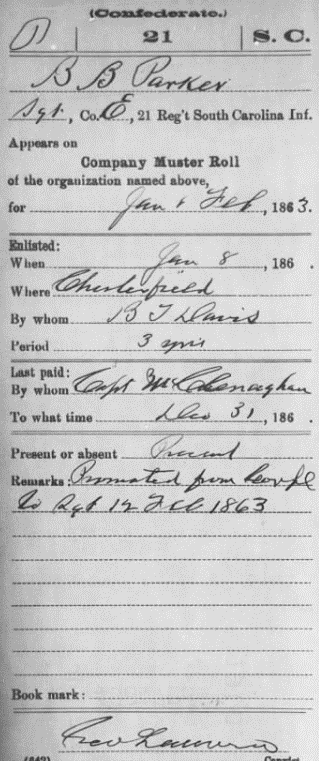 (Confederate.)
P | 21 | S. C.
B B Parker
Sgt, Co. E, 21 Reg't South Carolina Inf.
Appears on
Company Muster Roll
of the organization named above,
for Jan & Feb, 1863.
Enlisted:
When Jan 8, 186 .
Where Chesterfield
By whom B T Davis
Period 3 yrs
Last paid:
By whom Capt McClenaghan
To what time Dec 31, 186 .
Present or absent Present
Remarks: Promoted from Corpl
to Sgt 12 Feb 1863
Book mark:
(642) Copyist